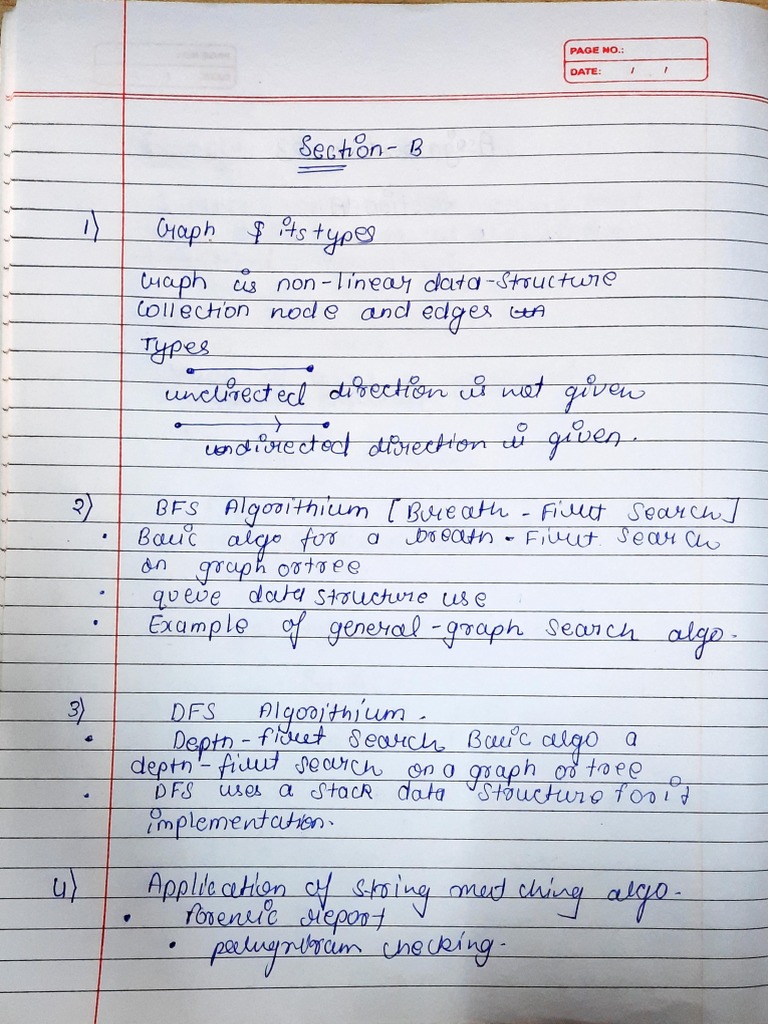 PAGE NO.:
DATE: / /
Section-B
1) Graph & its types
Graph is non-linear data-structure
Collection node and edges
Types
undirected direction is not given
undirected direction is given.
2) BFS Algorithium [Breath-First Search]
• Basic algo for a breath-First Search
on graph or tree
• queue data structure use
• Example of general-graph search algo.
3) DFS Algorithium.
• Depth-first Search Basic algo a
depth-first search on a graph or tree
• DFS uses a stack data structure for it
implementation.
4) Application of string matching algo.
• Forensic report
• checking.